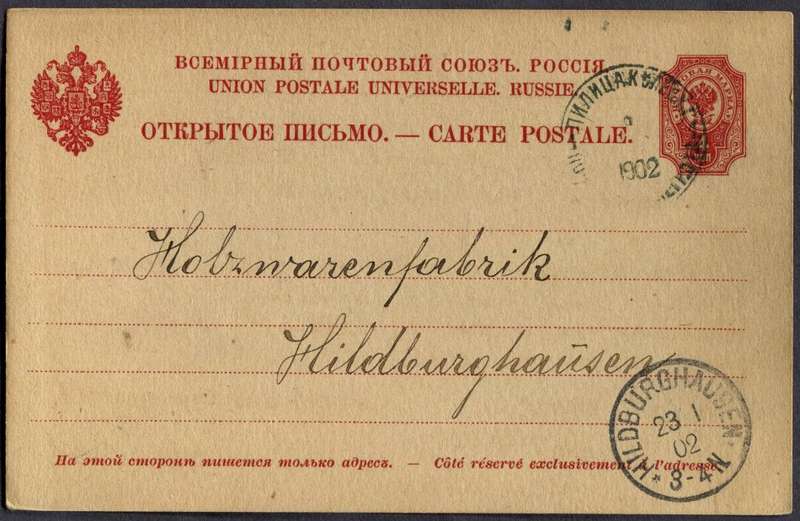 ВСЕМІРНЫЙ ПОЧТОВЫЙ СОЮЗЪ. РОССІЯ
UNION POSTALE UNIVERSELLE. RUSSIE
ОТКРЫТОЕ ПИСЬМО. — CARTE POSTALE.
ПИЛИЦА
1902
Holzwarenfabrik
Hildburghausen
HILDBURGHAUSEN
23 1
02
* 3-4 N
На этой сторонѣ пишется только адресъ. — Côté réservé exclusivement à l'adresse.